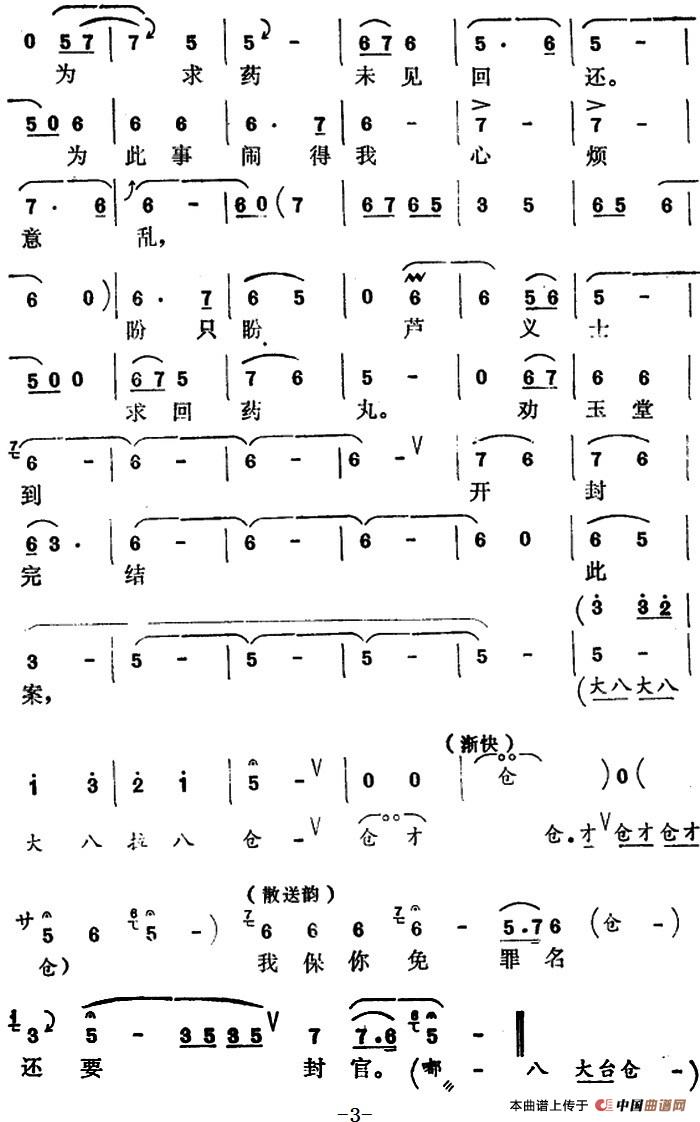 0 5 7 7 5 5 - 6 7 6 5 · 6 5 -
为 求 药 未 见 回 还。
5 0 6 6 6 6 · 7 6 - 7 - 7 -
为 此 事 闹 得 我 心 烦
7 · 6 6 - 6 0 ( 7 6 7 6 5 3 5 6 5 6
意 乱,
6 0 ) 6 · 7 6 5 0 6 6 5 6 5 -
盼 只 盼 芦 义 士
5 0 0 6 7 5 7 6 5 - 0 6 7 6 6
求 回 药 丸。 劝 玉 堂
7 6 - 6 - 6 - 6 - 7 6 7 6
到 开 封
6 3 · 6 - 6 - 6 - 6 0 6 5
完 结 此
( 3 3 2
3 - 5 - 5 - 5 - 5 - 5 -
案, ( 大 八 大 八
(渐快)
1 3 2 1 5 - 0 0 仓 ) 0 (
大 八 拉 八 仓 - 仓 才 仓 . 才 仓 才 仓 才
(散送韵)
サ 5 6 6 5 - ) 7 6 6 6 7 6 - 5 . 7 6 ( 仓 - )
仓 ) 我 保 你 免 罪 名
1 3 5 - 3 5 3 5 7 7 . 6 6 5 -
还 要 封 官。 ( 嘟 - 八 大 台 仓 - )
本曲谱上传于 中国曲谱网
-3-